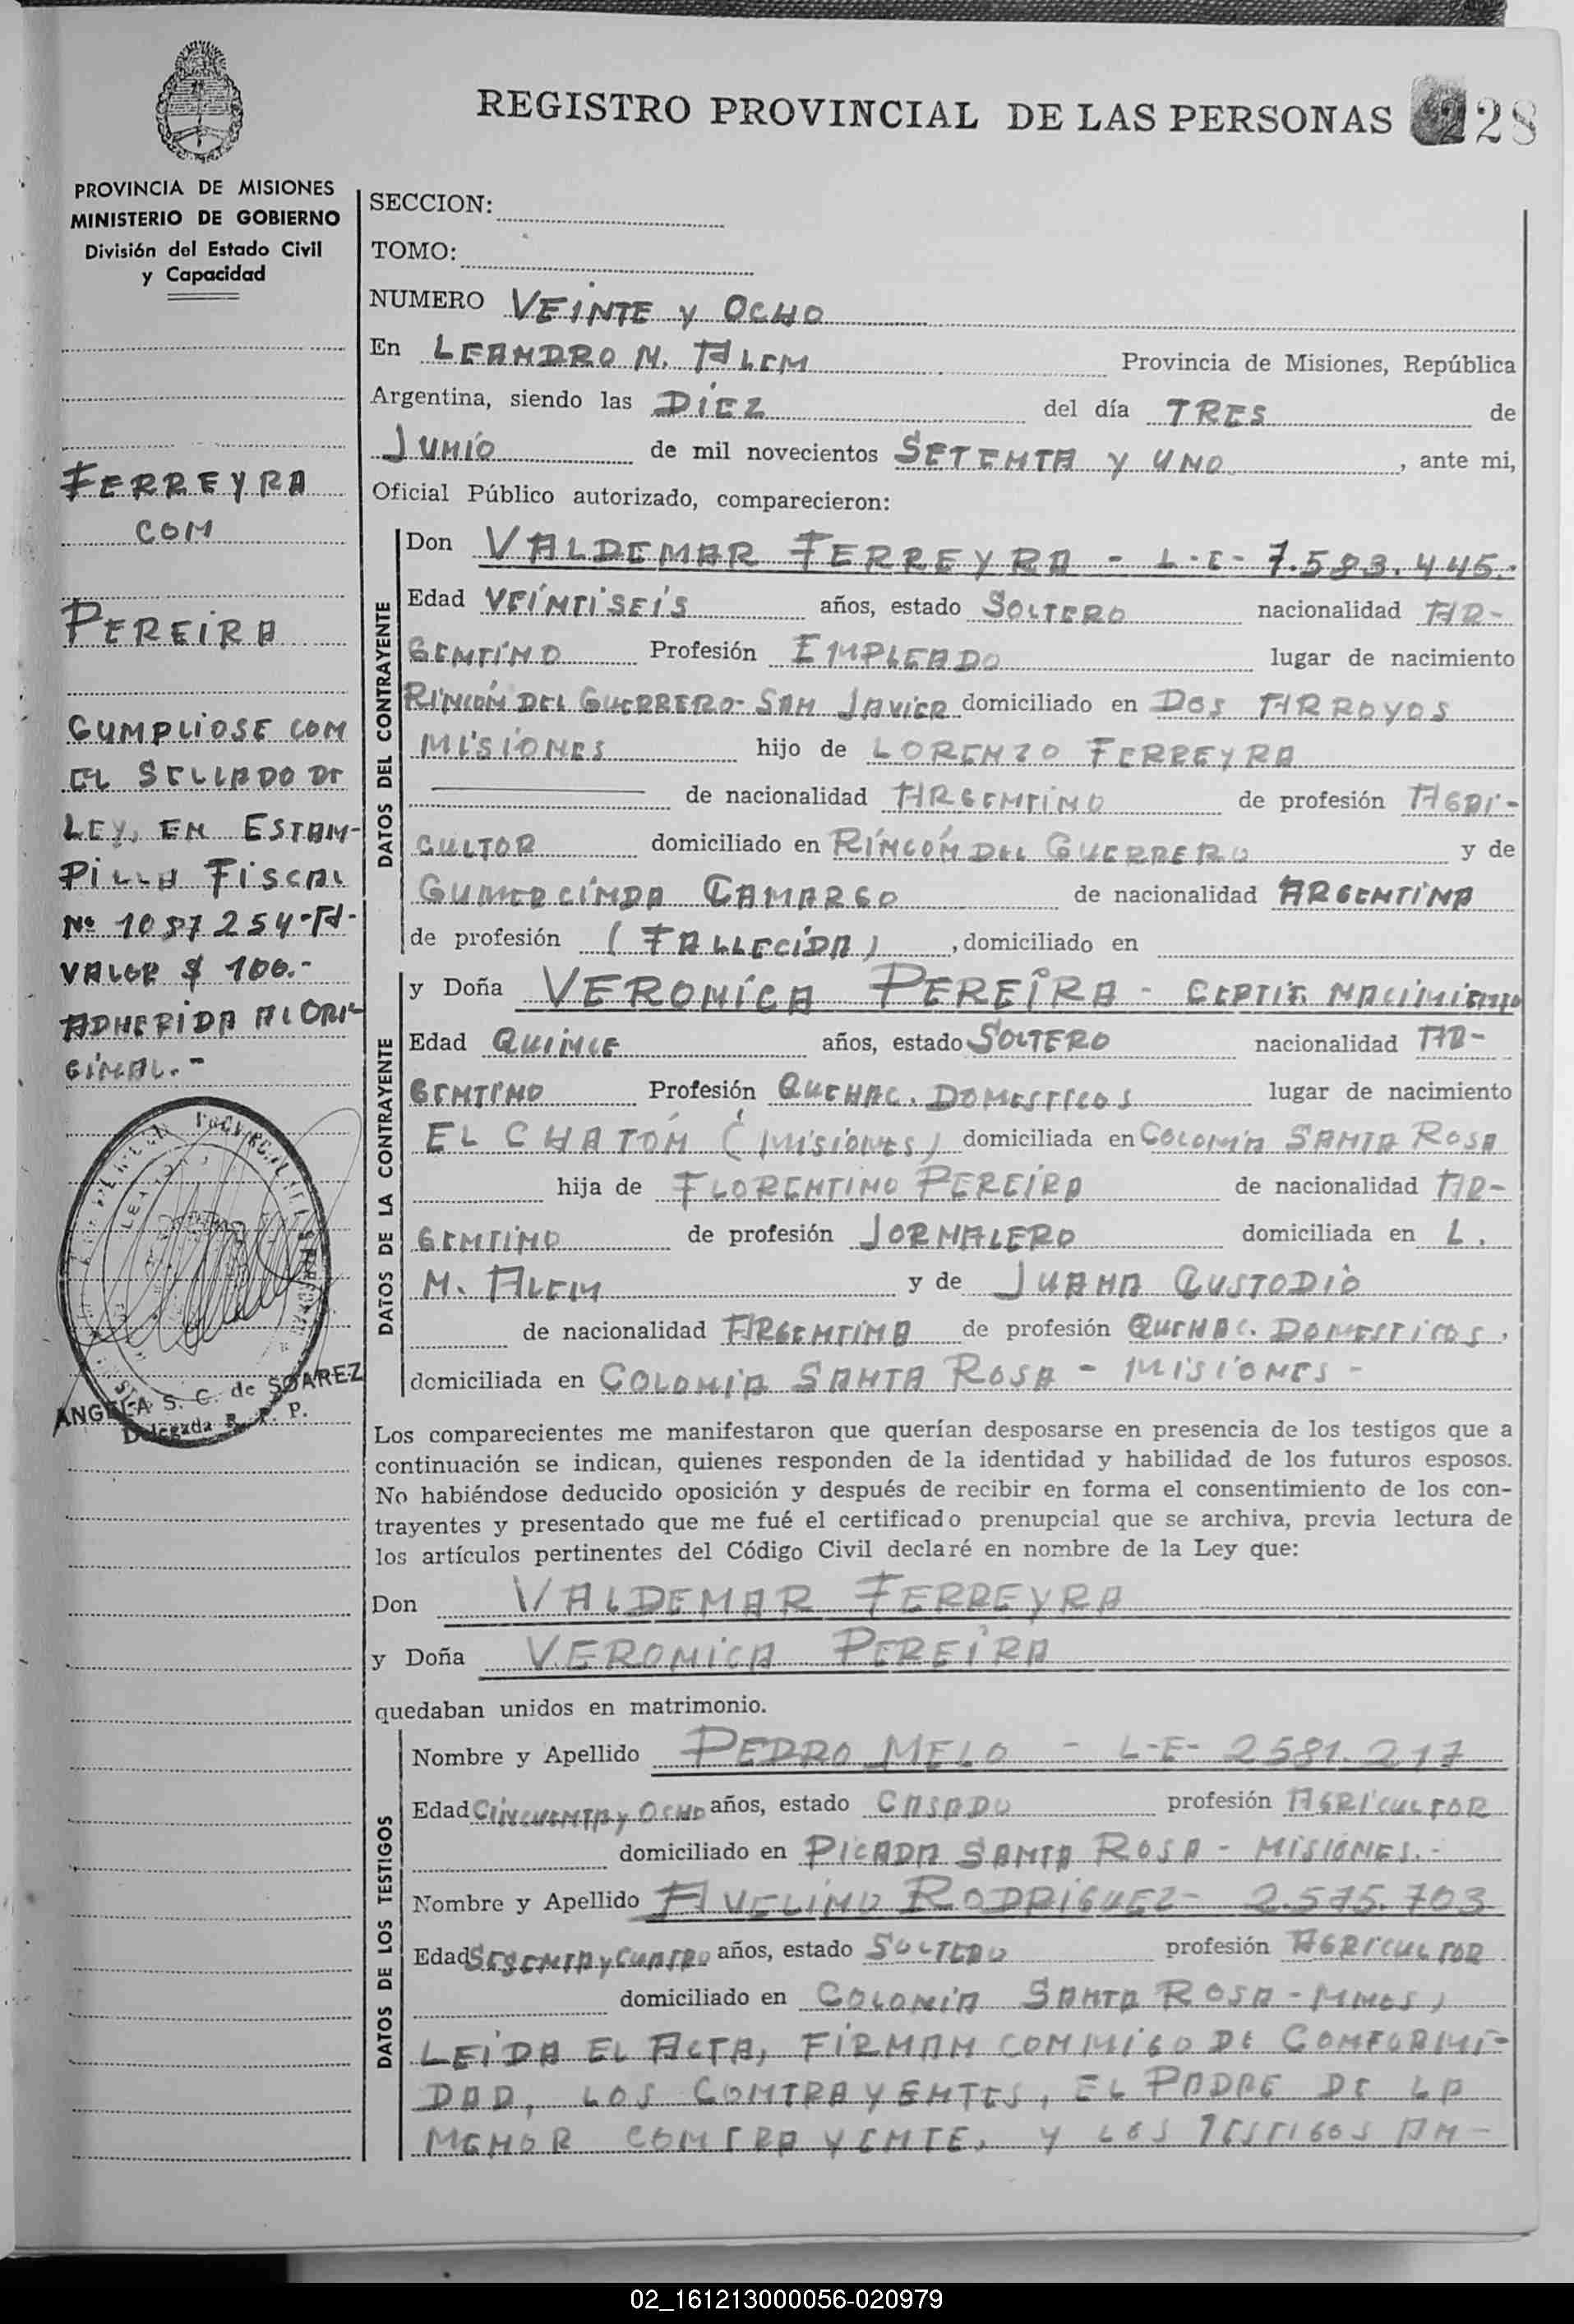 REGISTRO PROVINCIAL DE LAS PERSONAS 228
PROVINCIA DE MISIONES
MINISTERIO DE GOBIERNO
División del Estado Civil
y Capacidad
FERREYRA
CON
PEREIRA
CUMPLIOSE CON
EL SELLADO DE
LEY, EN ESTAM-
PILLA FISCAL
Nº 1087254-A-
VALOR $ 100.-
ADHERIDA AL ORI-
GINAL.-
ANGELA S. C. de SOAREZ
Delegada R. P. P.
SECCION:
TOMO:
NUMERO VEINTE Y OCHO
En LEANDRO N. ALEM Provincia de Misiones, República
Argentina, siendo las DIEZ del día TRES de
JUNIO de mil novecientos SETENTA Y UNO, ante mi,
Oficial Público autorizado, comparecieron:
DATOS DEL CONTRAYENTE
Don VALDEMAR FERREYRA - L-E- 7.583.445.-
Edad VEINTISEIS años, estado SOLTERO nacionalidad AR-
GENTINO Profesión EMPLEADO lugar de nacimiento
RINCÓN DEL GUERRERO- SAN JAVIER domiciliado en DOS ARROYOS
MISIONES hijo de LORENZO FERREYRA
de nacionalidad ARGENTINO de profesión AGRI-
CULTOR domiciliado en RINCÓN DEL GUERRERO y de
GUMERCINDA CAMARGO de nacionalidad ARGENTINA
de profesión (FALLECIDA), domiciliado en
DATOS DE LA CONTRAYENTE
y Doña VERONICA PEREIRA - CERTIF. NACIMIENTO
Edad QUINCE años, estado SOLTERO nacionalidad AR-
GENTINO Profesión QUEHAC. DOMESTICOS lugar de nacimiento
EL CHATÓN (MISIONES) domiciliada en COLONIA SANTA ROSA
hija de FLORENTINO PEREIRA de nacionalidad AR-
GENTINO de profesión JORNALERO domiciliada en L.
N. ALEM y de JUANA CUSTODIO
de nacionalidad ARGENTINA de profesión QUEHAC. DOMESTICOS,
domiciliada en COLONIA SANTA ROSA - MISIONES -
Los comparecientes me manifestaron que querían desposarse en presencia de los testigos que a
continuación se indican, quienes responden de la identidad y habilidad de los futuros esposos.
No habiéndose deducido oposición y después de recibir en forma el consentimiento de los con-
trayentes y presentado que me fué el certificado prenupcial que se archiva, previa lectura de
los artículos pertinentes del Código Civil declaré en nombre de la Ley que:
Don VALDEMAR FERREYRA
y Doña VERONICA PEREIRA
quedaban unidos en matrimonio.
DATOS DE LOS TESTIGOS
Nombre y Apellido PEDRO MELO - L-E- 2581.217
Edad CINCUENTA Y OCHO años, estado CASADO profesión AGRICULTOR
domiciliado en PICADA SANTA ROSA - MISIONES.-
Nombre y Apellido AVELINO RODRIGUEZ- 2.575.703
Edad SESENTA Y CUATRO años, estado SOLTERO profesión AGRICULTOR
domiciliado en COLONIA SANTA ROSA - MNES)
LEIDA EL ACTA, FIRMAN CONMIGO DE CONFORMI-
DAD, LOS CONTRAYENTES, EL PADRE DE LA
MENOR CONTRAYENTE, Y LOS TESTIGOS AN-
02_161213000056-020979